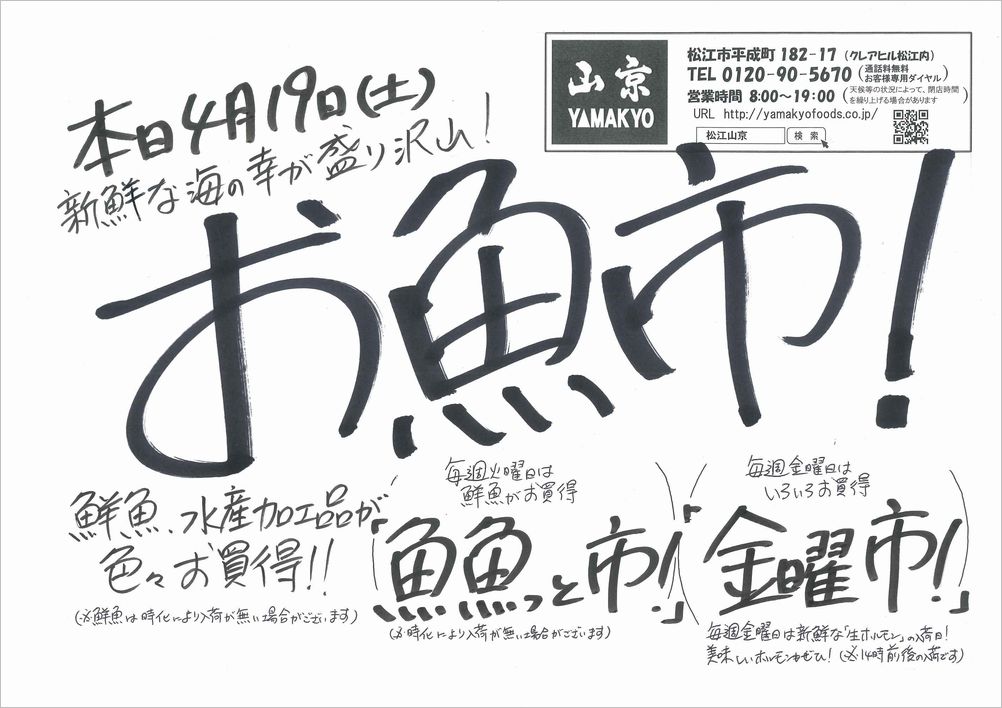 本日4月19日(土)
新鮮な海の幸が盛り沢山!
山京
YAMAKYO
松江市平成町 182-17 (クレアヒル松江内)
TEL 0120-90-5670 (通話料無料 お客様専用ダイヤル)
営業時間 8:00～19:00 (天候等の状況によって、閉店時間を繰り上げる場合があります)
URL http://yamakyofoods.co.jp/
松江山京 検索
お魚市!
鮮魚、水産加工品が
色々お買得!!
(※鮮魚は時化により入荷が無い場合がございます)
毎週火曜日は
鮮魚がお買得
「魚魚っと市!」
(※時化により入荷が無い場合がございます)
毎週金曜日は
いろいろお買得
「金曜市!」
毎週金曜日は新鮮な「生ホルモン」の入荷日!
美味しいホルモンをぜひ! (※14時前後の入荷です)